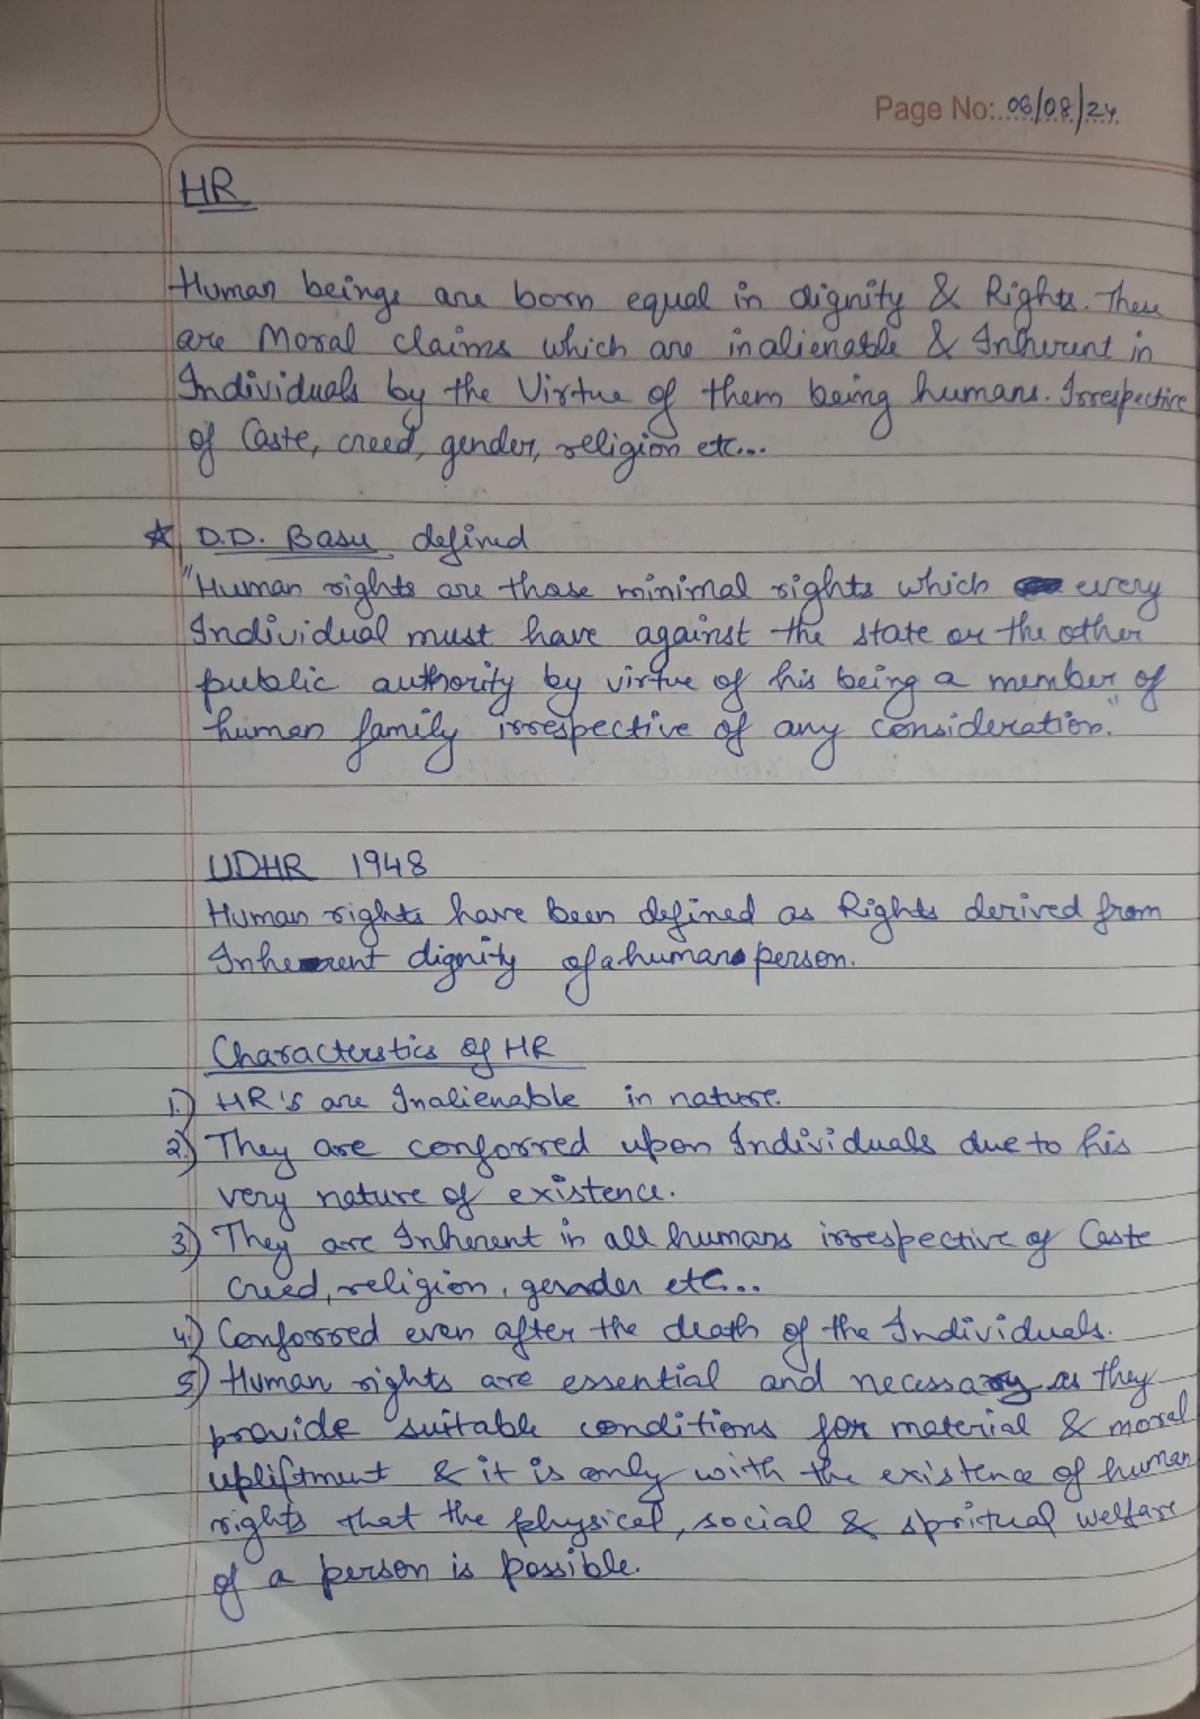 Page No: 06/08/24
HR
Human beings are born equal in dignity & Rights. These
are Moral claims which are inalienable & Inherent in
Individuals by the Virtue of them being humans. Irrespective
of Caste, creed, gender, religion etc...
☆ D.D. Basu defined
"Human rights are those minimal rights which every
Individual must have against the state or the other
public authority by virtue of his being a member of
human family irrespective of any consideration."
UDHR 1948
Human rights have been defined as Rights derived from
Inherent dignity of a human person.
Characterstics of HR
1.) HR's are Inalienable in nature.
2.) They are conforred upon Individuals due to his
very nature of existence.
3.) They are Inherent in all humans irrespective of Caste
Creed, religion, gender etc...
4.) Conforred even after the death of the Individuals.
5.) Human rights are essential and necessary as they
provide suitable conditions for material & moral
upliftment & it is only with the existence of human
rights that the physical, social & spritual welfare
of a person is possible.